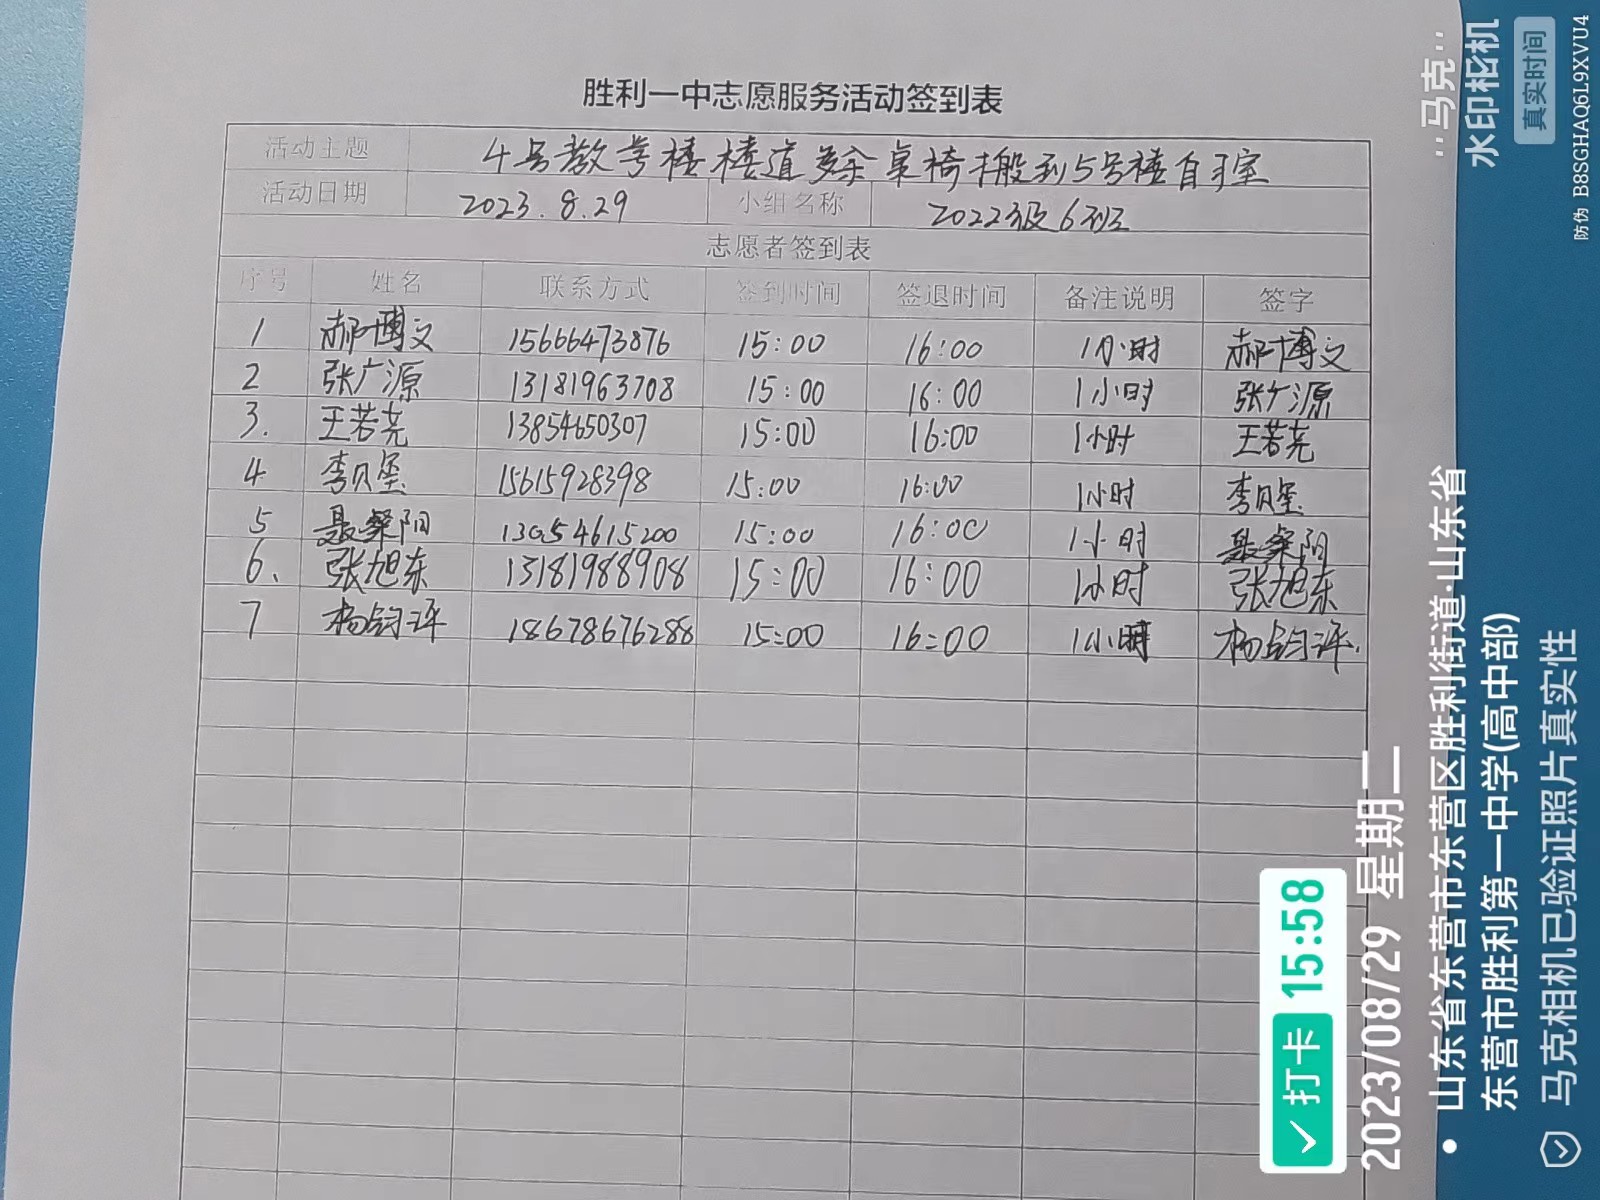 胜利一中志愿服务活动签到表
活动主题 4号教学楼楼道多余桌椅搬到5号楼自习室
活动日期 2023.8.29 小组名称 2022级6班
志愿者签到表
序号 姓名 联系方式 签到时间 签退时间 备注说明 签字
1 郝博文 15666473876 15:00 16:00 1小时 郝博文
2 张广源 13181963708 15:00 16:00 1小时 张广源
3. 王若尧 13854650307 15:00 16:00 1小时 王若尧
4 李贝玺 15615928398 15:00 16:00 1小时 李贝玺
5 聂粲阳 13054615200 15:00 16:00 1小时 聂粲阳
6、 张旭东 13181988908 15:00 16:00 1小时 张旭东
7 杨钧评 18678676288 15:00 16:00 1小时 杨钧评.
打卡 15:58
2023/08/29 星期二
山东省东营市东营区胜利街道·山东省
东营市胜利第一中学(高中部)
马克相机已验证照片真实性
马克
水印相机
真实时间
防伪 B8SGHAQ6L9XVU4